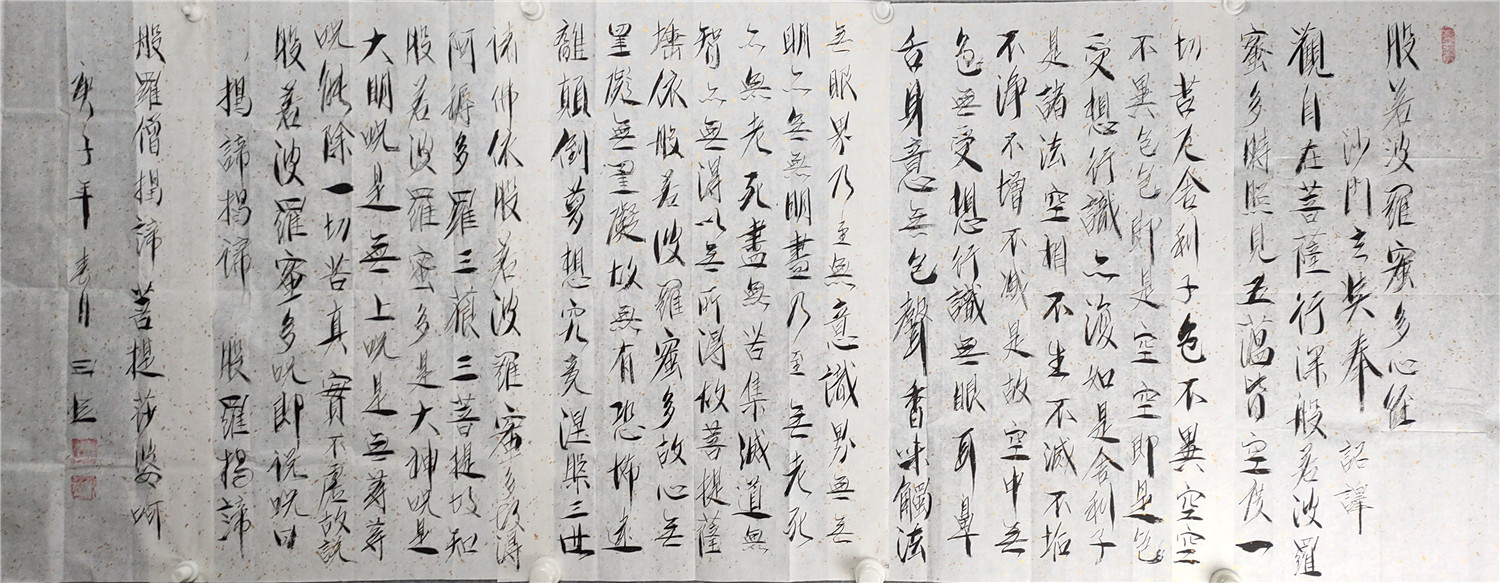 般若波羅蜜多心经
沙門玄奘奉 詔譯
觀自在菩薩行深般若波羅
蜜多時照見五蕴皆空度一
切苦厄舍利子色不異空空
不異色色即是空空即是色
受想行識亦復如是舍利子
是諸法空相不生不滅不垢
不淨不增不减是故空中无
色无受想行識無眼耳鼻
舌身意无色聲香味觸法
无眼界乃至無意識界无无
明亦无無明盡乃至无老死
亦無老死盡無苦集滅道無
智亦無得以无所得故菩提薩
埵依般若波羅蜜多故心无
罣礙無罣礙故無有恐怖遠
離顛倒夢想究竟涅槃三世
諸佛依般若波羅蜜多故得
阿耨多羅三藐三菩提故知
般若波羅蜜多是大神呪是
大明呪是無上呪是无等等
呪能除一切苦真實不虛故説
般若波羅蜜多呪即説呪曰
揭諦揭諦 般羅揭諦
般羅僧揭諦 菩提莎婆呵
庚子年春月